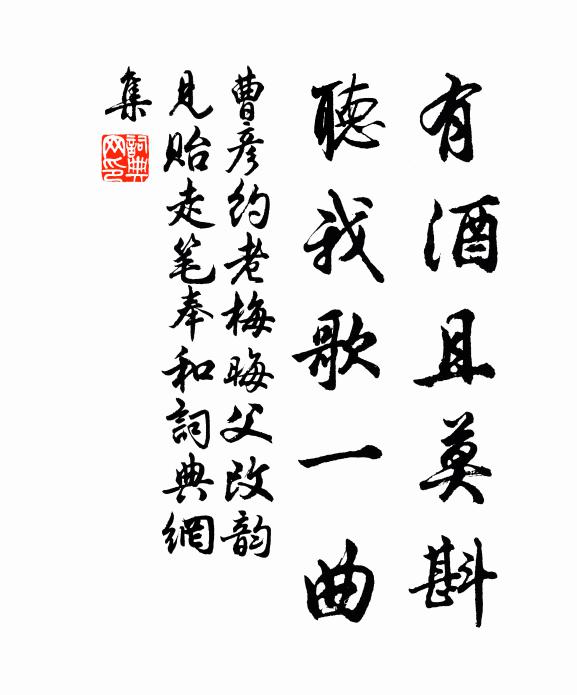 有酒且莫斟
聽我歌一曲
曹彦约老梅晦父改韵
見贻走笔奉和詞典網
集
詞典網印